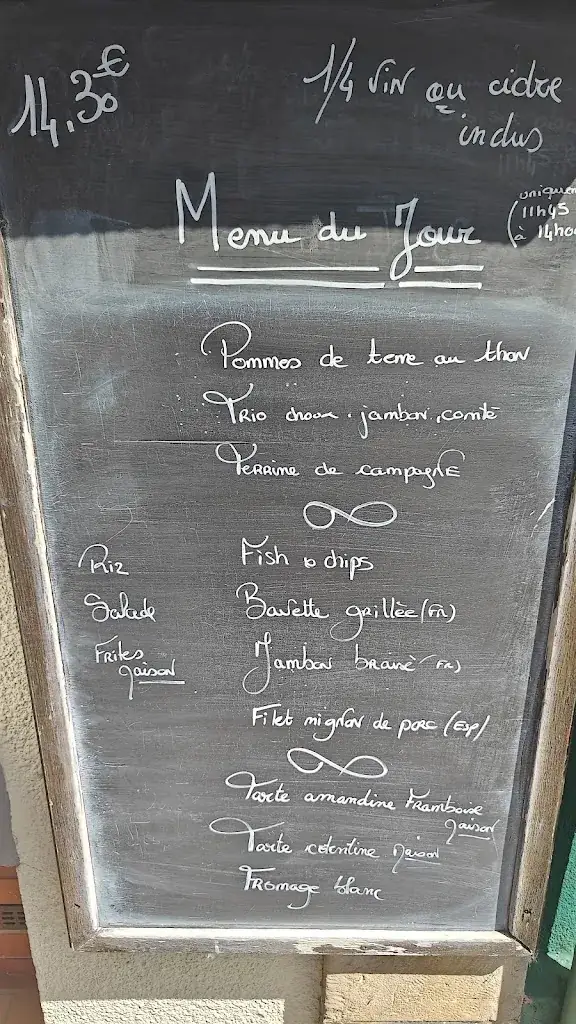 14,30€
1/4 vin ou cidre
inclus
Menu du Jour
(11h45
à 14h00
Pommes de terre au thon
Trio choux, jambon, comté
Terrine de campagne
Riz
Fish & chips
Salade
Bavette grillée (FR)
Frites
maison
Jambon braisé (FR)
Filet mignon de porc (Esp)
Tarte amandine Framboise
maison
Tarte cotentine maison
Fromage blanc